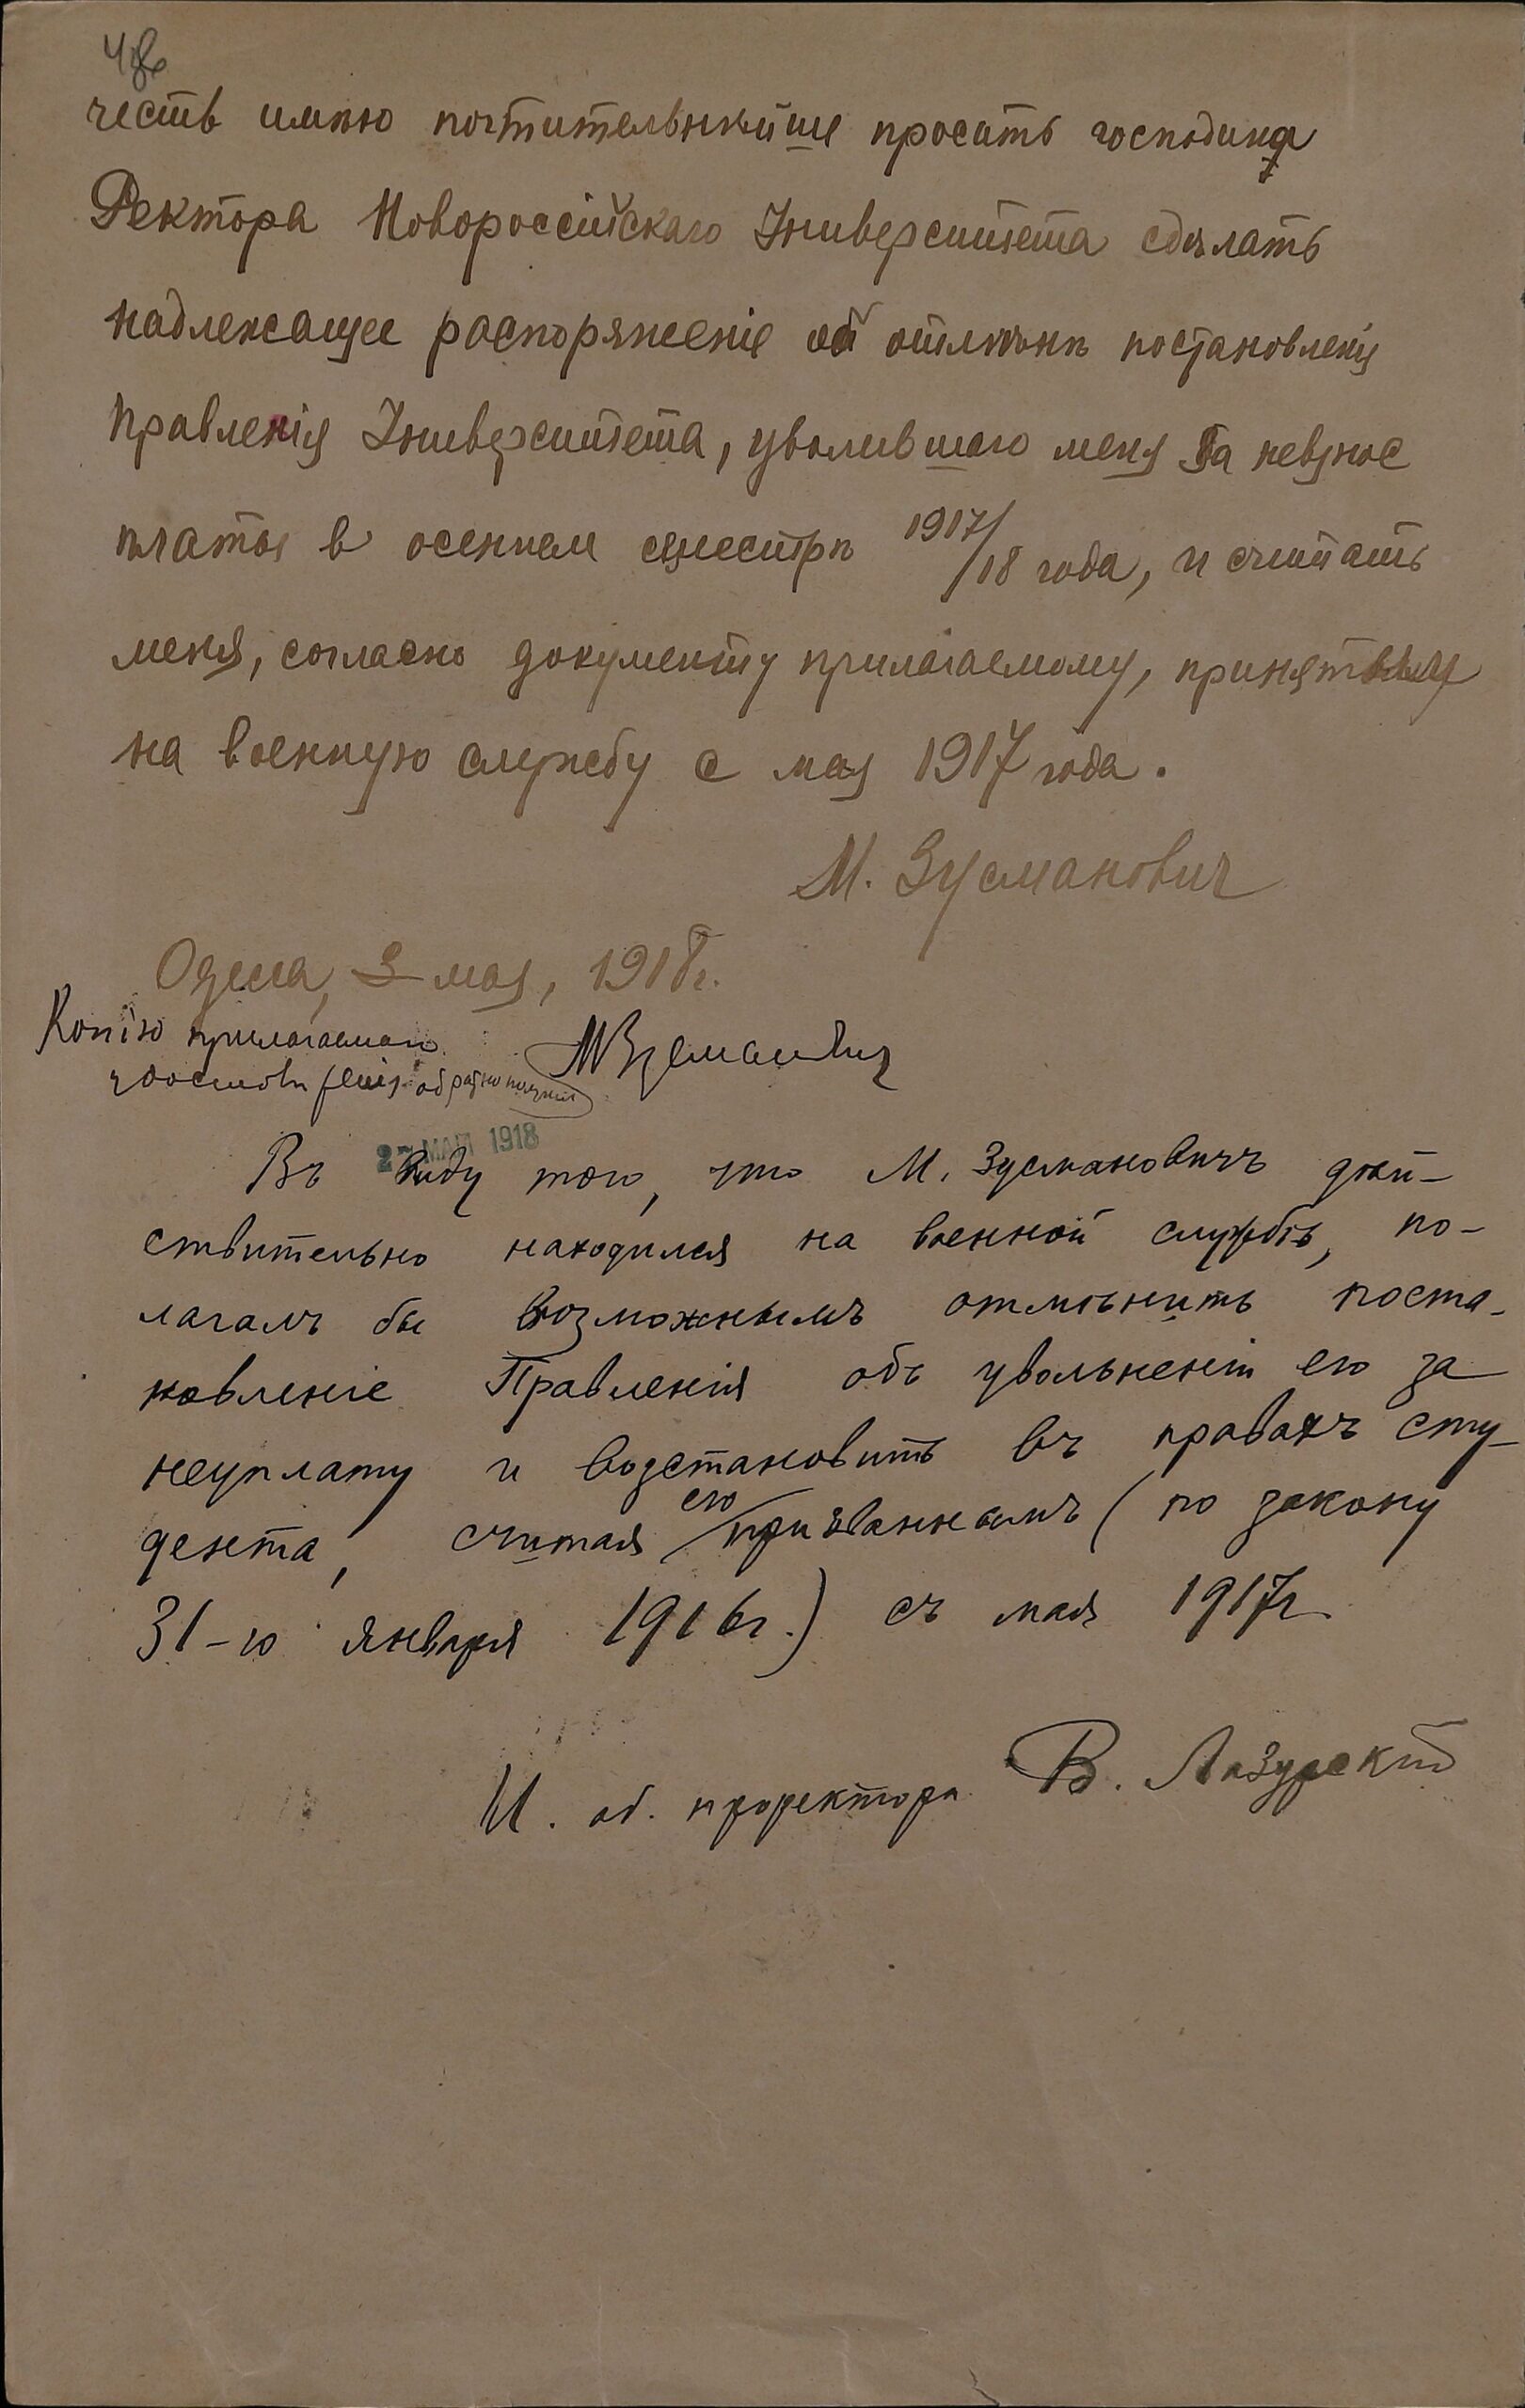 честь имѣю почтительнѣйше просить господина
Ректора Новороссійскаго Университета сдѣлать
надлежащее распоряженіе об отмѣнѣ постановленія
Правленія Университета, уволившаго меня за невзнос
платы в осеннем семестрѣ 1917/18 года, и считать
меня, согласно документу прилагаемому, принятым
на военную службу с мая 1917 года.
М. Зусманович
Одесса, 3 мая, 1918 г.
Копію прилагаемаго
удостовѣренія обратно получил
МЗусманович
2 МАЙ 1918
Въ виду того, что М. Зусмановичъ дѣй-
ствительно находился на военной службѣ, по-
лагалъ бы возможнымъ отмѣнить поста-
новленіе Правленія объ увольненіи его за
неуплату и возстановить въ правахъ сту-
дента, считая его призваннымъ (по закону
31-го января 1916г.) съ мая 1917г
И. об. проректора В. Лазурскій